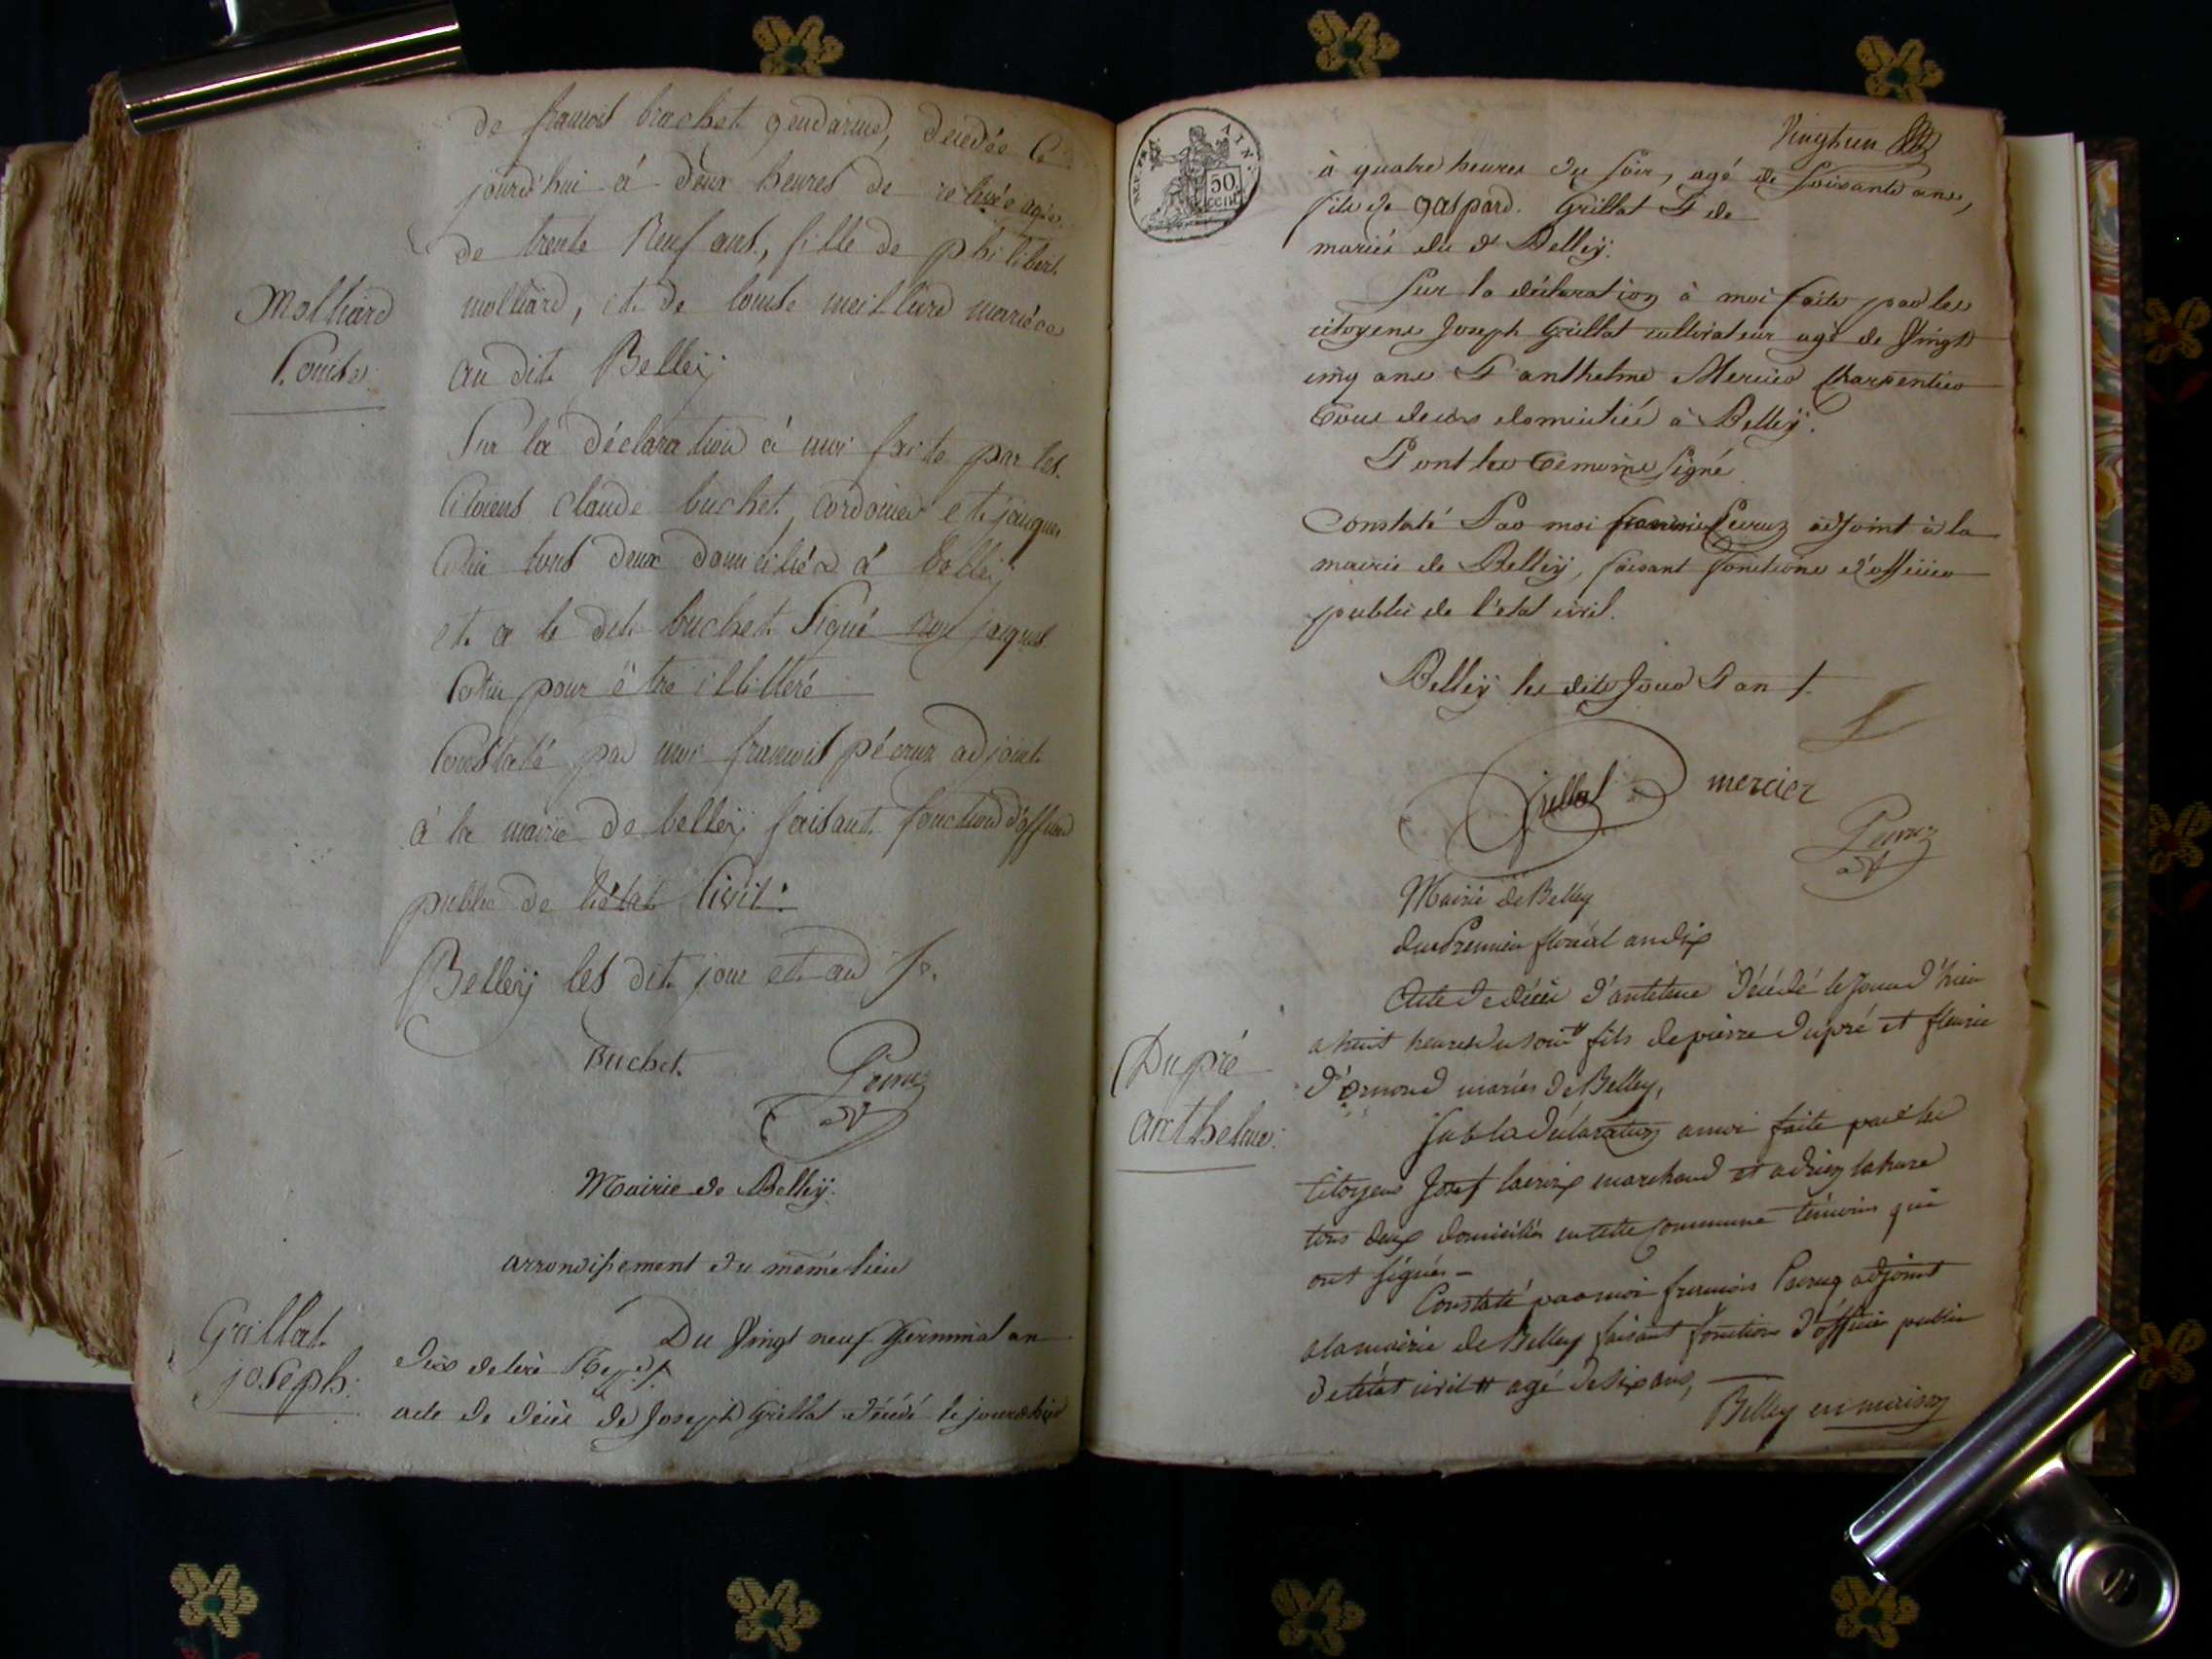 de francois brachet gendarme, décédée ce
jourd'hui à deux heures de relevée agée
de trente Neuf ans, fille de philibert
Molliard
molliard, et de louise meillard mariés
Louise
au dit Belley
Sur la déclaration à moi faite par les
Citoiens claude buchet, cordonier et jacques
tous deux domiciliés à belley
et a le dit buchet Signé non jacques
pour être illitteré
Constaté par moi francois péeruz adjoint
à la mairie de belley faisant fonction d'officier
public de l'état Civil.
Belley les dit jour et an
Buchet
Peeruz
adj
Mairie de Belley.
arrondissement du même lieu
Grillat
joseph.
Du Vingt neuf Germinal an
dix de l'ere Rep.
acte de décès de Joseph Grillat décédé le jourd'hier
REP. FRA. AIN.
50 cent.
Vingt un
à quatre heures du soir, agé de soixante ans,
fils de gaspard Grillat & de
mariés du d. Belley.
Sur la déclaration à moi faite par les
citoyens Joseph Grillat cultivateur agé de Vingt
cinq ans & anthelme Mercier Charpentier
Tous deux domiciliés à Belley.
& ont les Témoins signé
Constaté Par moi francois Peeruz adjoint à la
mairie de Belley, faisant fonctions d'officier
public de l'etat civil.
Belley les dits Jour & an
Grillat
mercier
Peeruz
adj
Mairie de Belley
du Premier floréal an dix
Acte de décès d'antelme décédé le jour d'hier
a huit heures du soir # fils de pierre Dupré et fleurie
Dupré
d'Ormond mariés de Belley,
anthelme.
Sur la déclaration a moi faite par les
Citoyens Josef lacroix marchand et adrien
tous deux domiciliés en cette commune témoins qui
ont signés -
Constaté par moi francois Peeruz adjoint
a la mairie de Belley faisant fonction d'officier public
de l'état civil # agé de six ans,
Belley en mairie